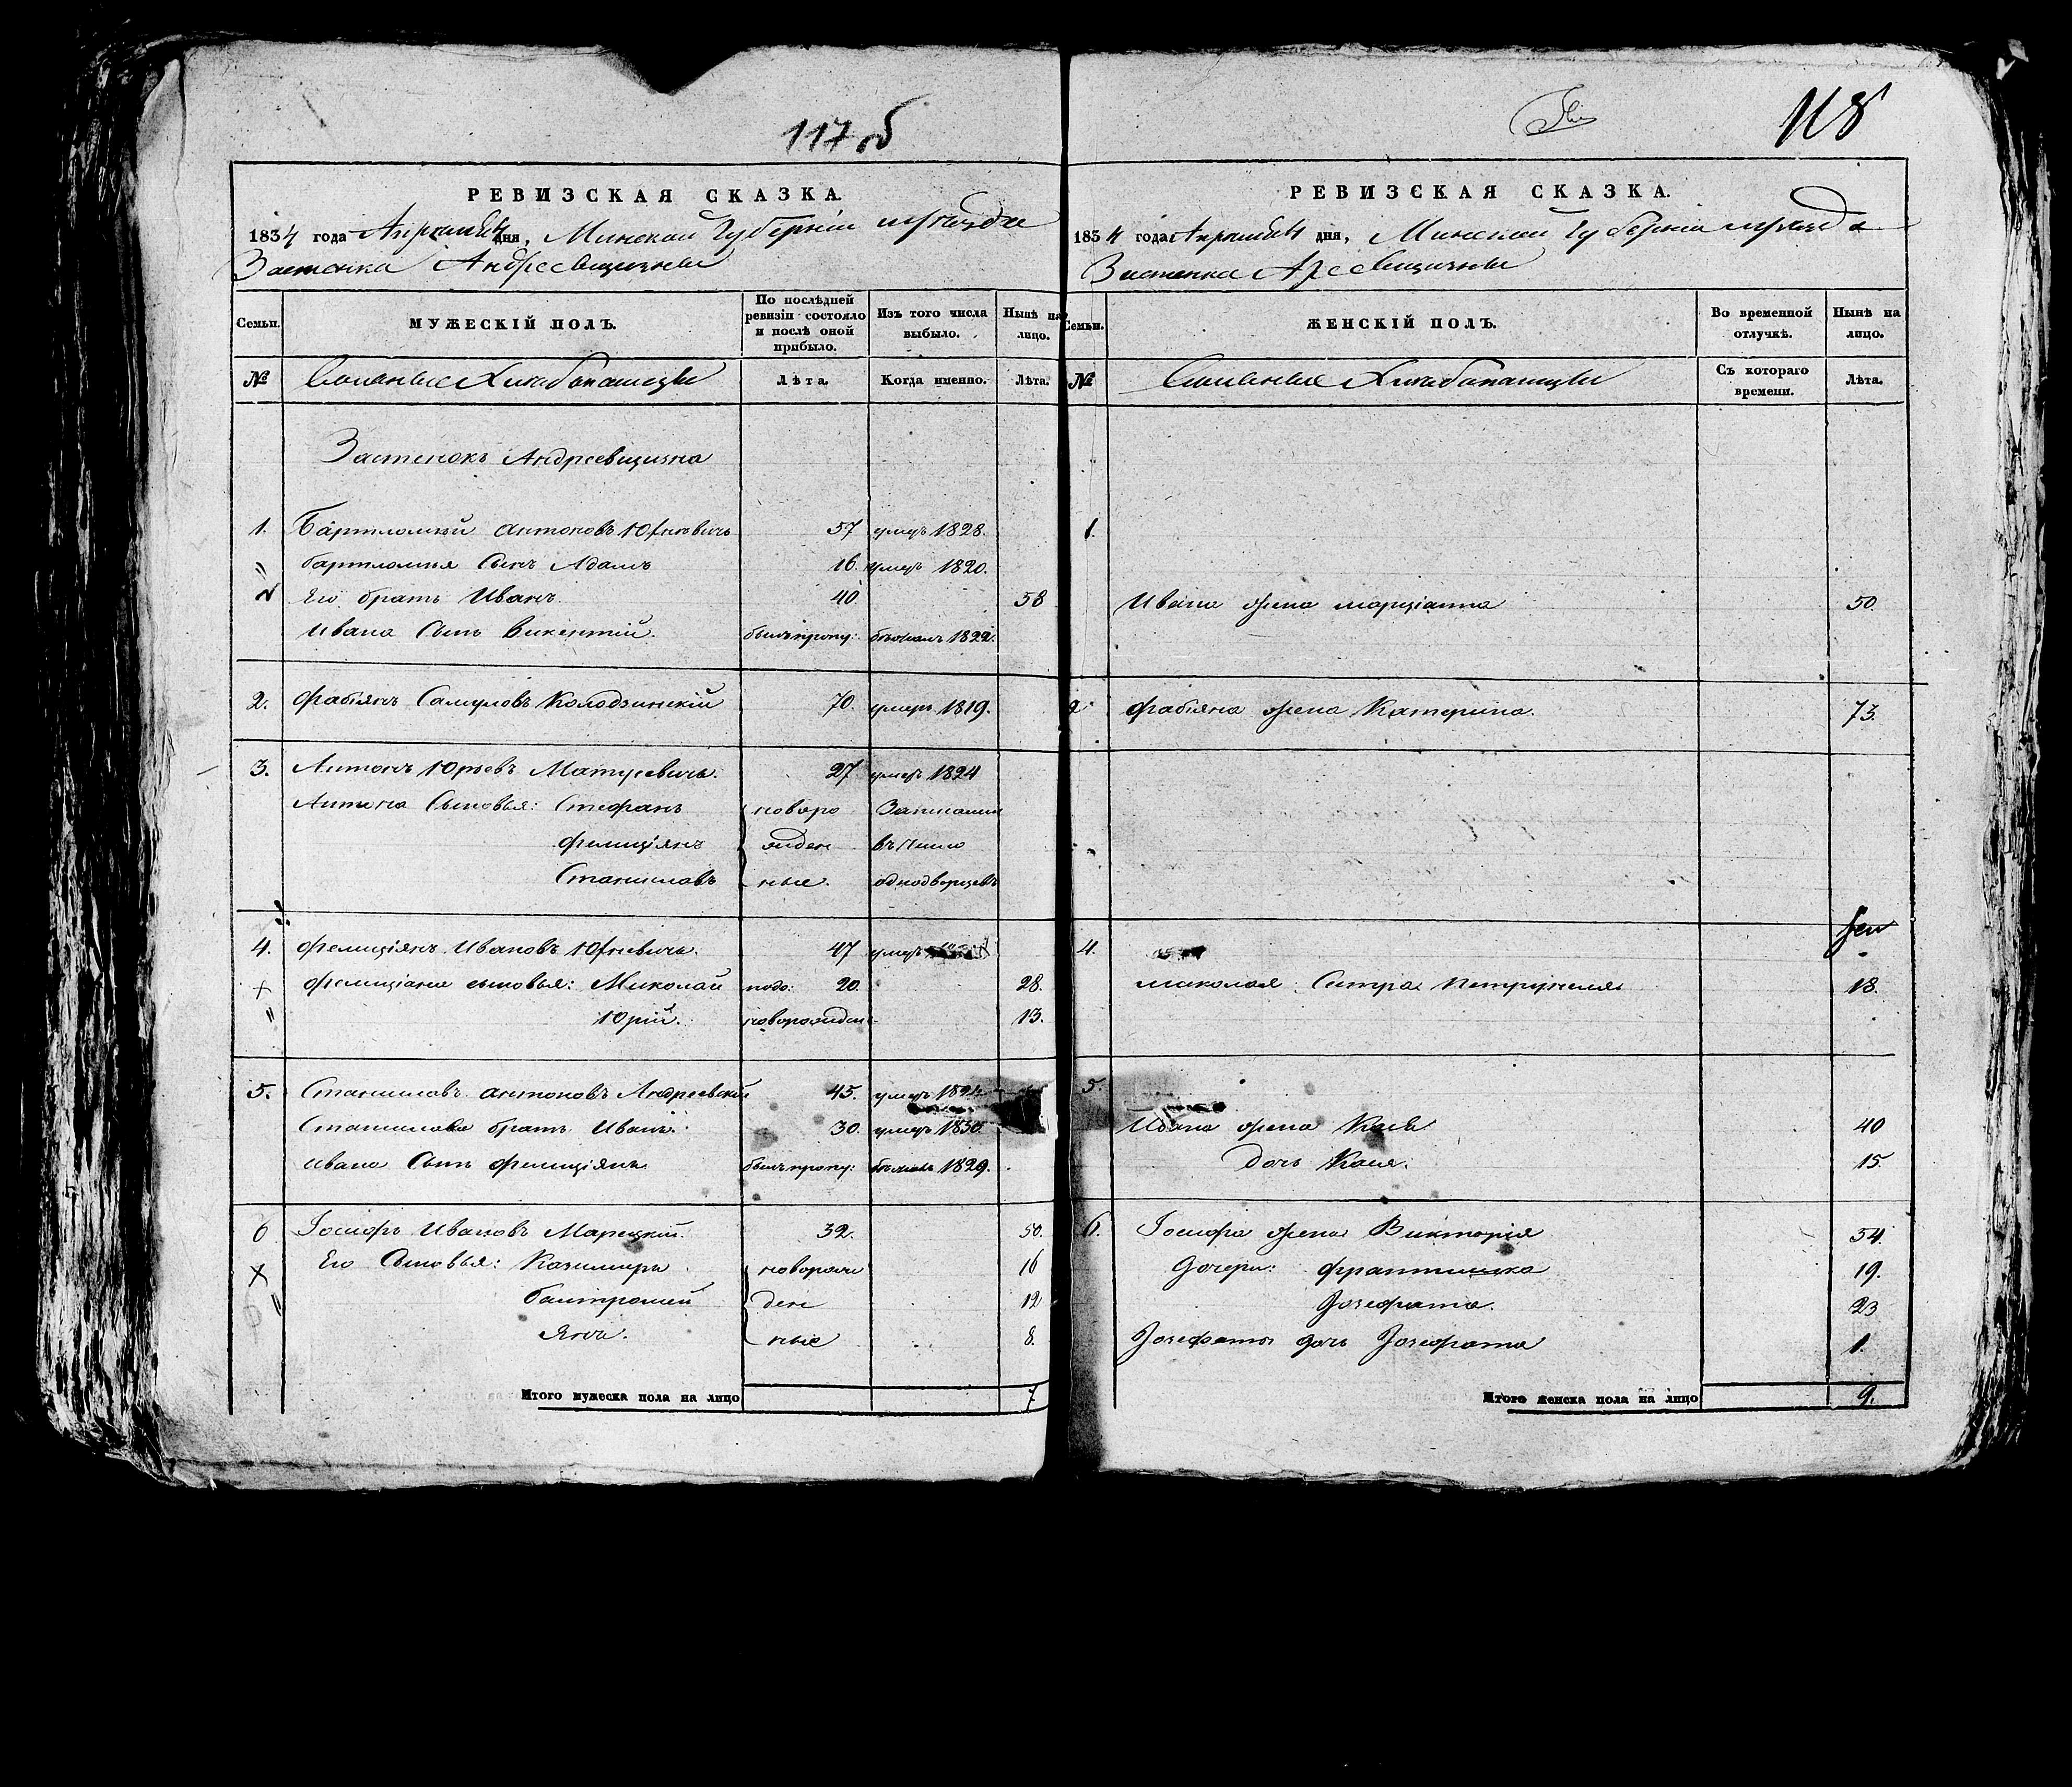 117 об
118
РЕВИЗСКАЯ СКАЗКА.
1834 года Апреля дня, Минской Губернии и уезда
Застенка Андреевщизны
Семьи.
МУЖЕСКІЙ ПОЛЪ.
По послѣдней ревизіи состояло и послѣ оной прибыло.
Изъ того числа выбыло.
Нынѣ на лицо.
№
Вольные Хлебопашцы
Лѣта.
Когда именно.
Лѣта.
Застенокъ Андреевщизна
1. Бартломей Антоновъ Юхневичь 57 умеръ 1828.
Бартломея Сынъ Адамъ 16. умеръ 1820.
Его братъ Иванъ 40. 58
Ивана Сынъ Викентій. былъ пропу: бежалъ 1822.
2. Фабіянъ Самуловъ Колодзинскій 70. умеръ 1819.
3. Антонъ Юрьевъ Матусевичь. 27 умеръ 1824
Антона Сыновья: Стефанъ новоро Записаны
Фелиціянъ жден въ число
Станиславъ ные. однодворцевъ
4. Фелиціянъ Ивановъ Юхневичь. 47 умеръ
Фелиціана сыновья: Миколай 20. 28.
Юрій. новорожден 13.
5. Станиславъ Антоновъ Андреевскій 45. умеръ 1824
Станислава братъ Иванъ. 30. умеръ 1830.
Ивана Сынъ Фелиціянъ былъ пропу: бежалъ 1829.
6 Іосифъ Ивановъ Марецкій. 32. 50.
Его Сыновья: Казимиръ новорож 16
Балтромей ден 12
Янъ. ные 8.
Итого мужеска пола на лицо 7
РЕВИЗСКАЯ СКАЗКА.
1834 года Апреля дня, Минской Губернии и уезда
Застенка
Семьи.
ЖЕНСКІЙ ПОЛЪ.
Во временной отлучкѣ.
Нынѣ на лицо.
№
Вольные Хлебопашцы
Съ котораго времени.
Лѣта.
1.
Ивана жена Марціанна 50.
2 Фабіяна жена Катерина. 73.
4.
Миколая Систра Петрунеля 18.
5.
Ивана жена 40
Дочь Касія. 15.
6. Іосифа жена Викторія 54.
Дочери: Франтишка 19.
Іозефата. 23
Іозефаты дочь Іозефата 1.
Итого женска пола на лицо 9.